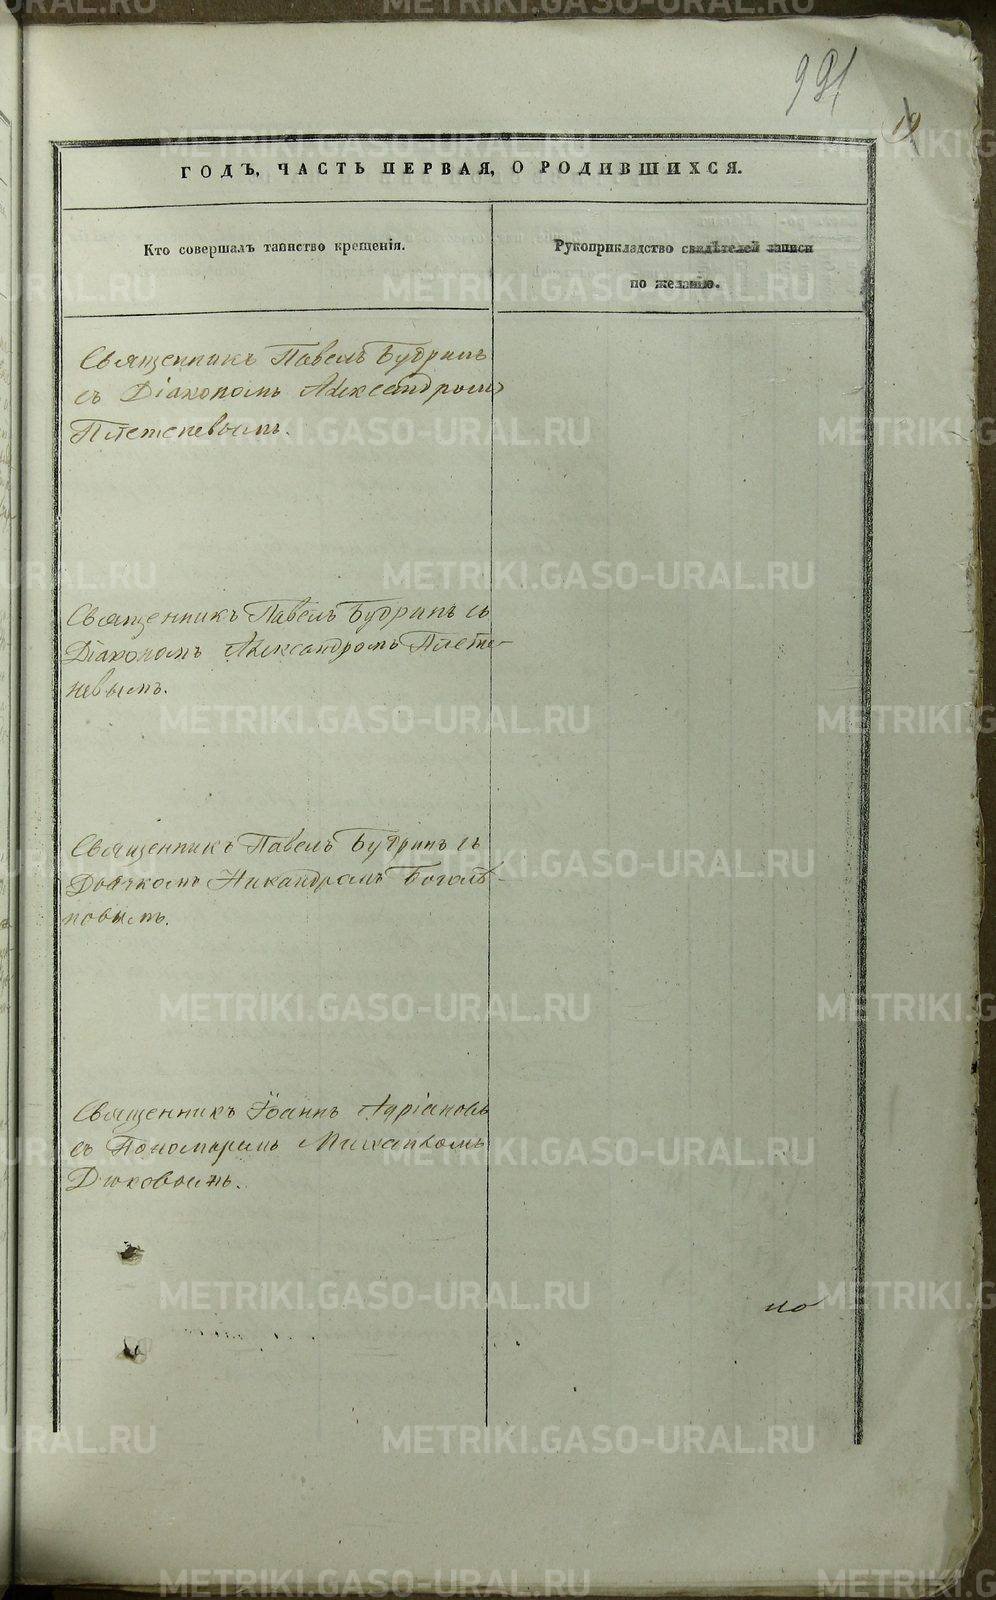 991
19
ГОДЪ, ЧАСТЬ ПЕРВАЯ, О РОДИВШИХСЯ.
Кто совершалъ таинство крещенія.
Рукоприкладство свидѣтелей записи
по желанію.
Священникъ Павелъ Будринъ
съ Діакономъ Александромъ
Плетеневымъ.
Священникъ Павелъ Будринъ съ
Діакономъ Александромъ Плете-
невымъ.
Священникъ Павелъ Будринъ съ
Дьячкомъ Никандромъ Боголѣ-
повымъ.
Священникъ Іоаннъ Адріановъ
съ Пономаремъ Михаиломъ
Дюковымъ.
но
METRIKI.GASO-URAL.RU